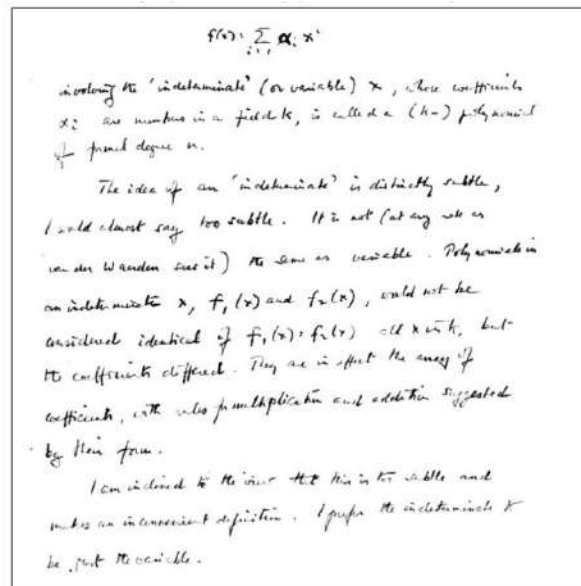 f(x) = Σ αᵢ xⁱ
i=1
involving the 'indeterminate' (or variable) x, whose coefficients
αᵢ are numbers in a field k, is called a (k-) polynomial
of formal degree n.
The idea of an 'indeterminate' is distinctly subtle,
I would almost say too subtle. It is not (at any rate as
van der Waerden sees it) the same as variable. Polynomials in
an indeterminate x, f₁(x) and f₂(x), would not be
considered identical if f₁(x) = f₂(x) all x in k, but
the coefficients differed. They are in effect the array of
coefficients, with rules for multiplication and addition suggested
by their form.
I am inclined to the view that this is too subtle and
makes an inconvenient definition. I prefer the indeterminate x
be just the variable.